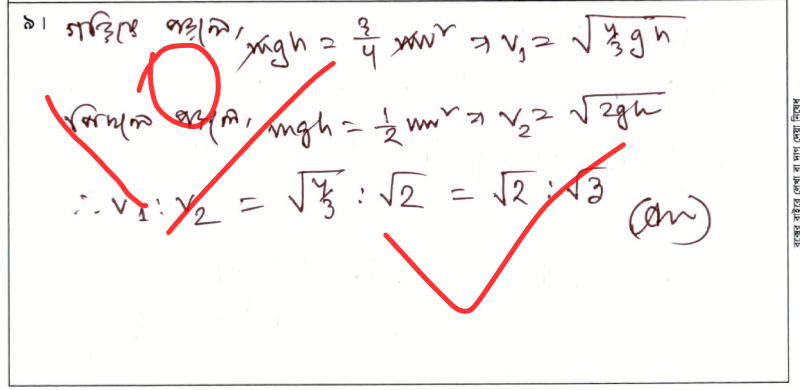 ৯। গড়িয়ে পড়লে, mgh = 3/4 mv² ⇒ v₁ = √(4/3 gh)
পিছলে পড়লে, mgh = 1/2 mv² ⇒ v₂ = √(2gh)
∴ v₁ : v₂ = √(4/3) : √2 = √2 : √3 (Ans)
বক্সের বাইরে লেখা বা দাগ দেয়া নিষেধ